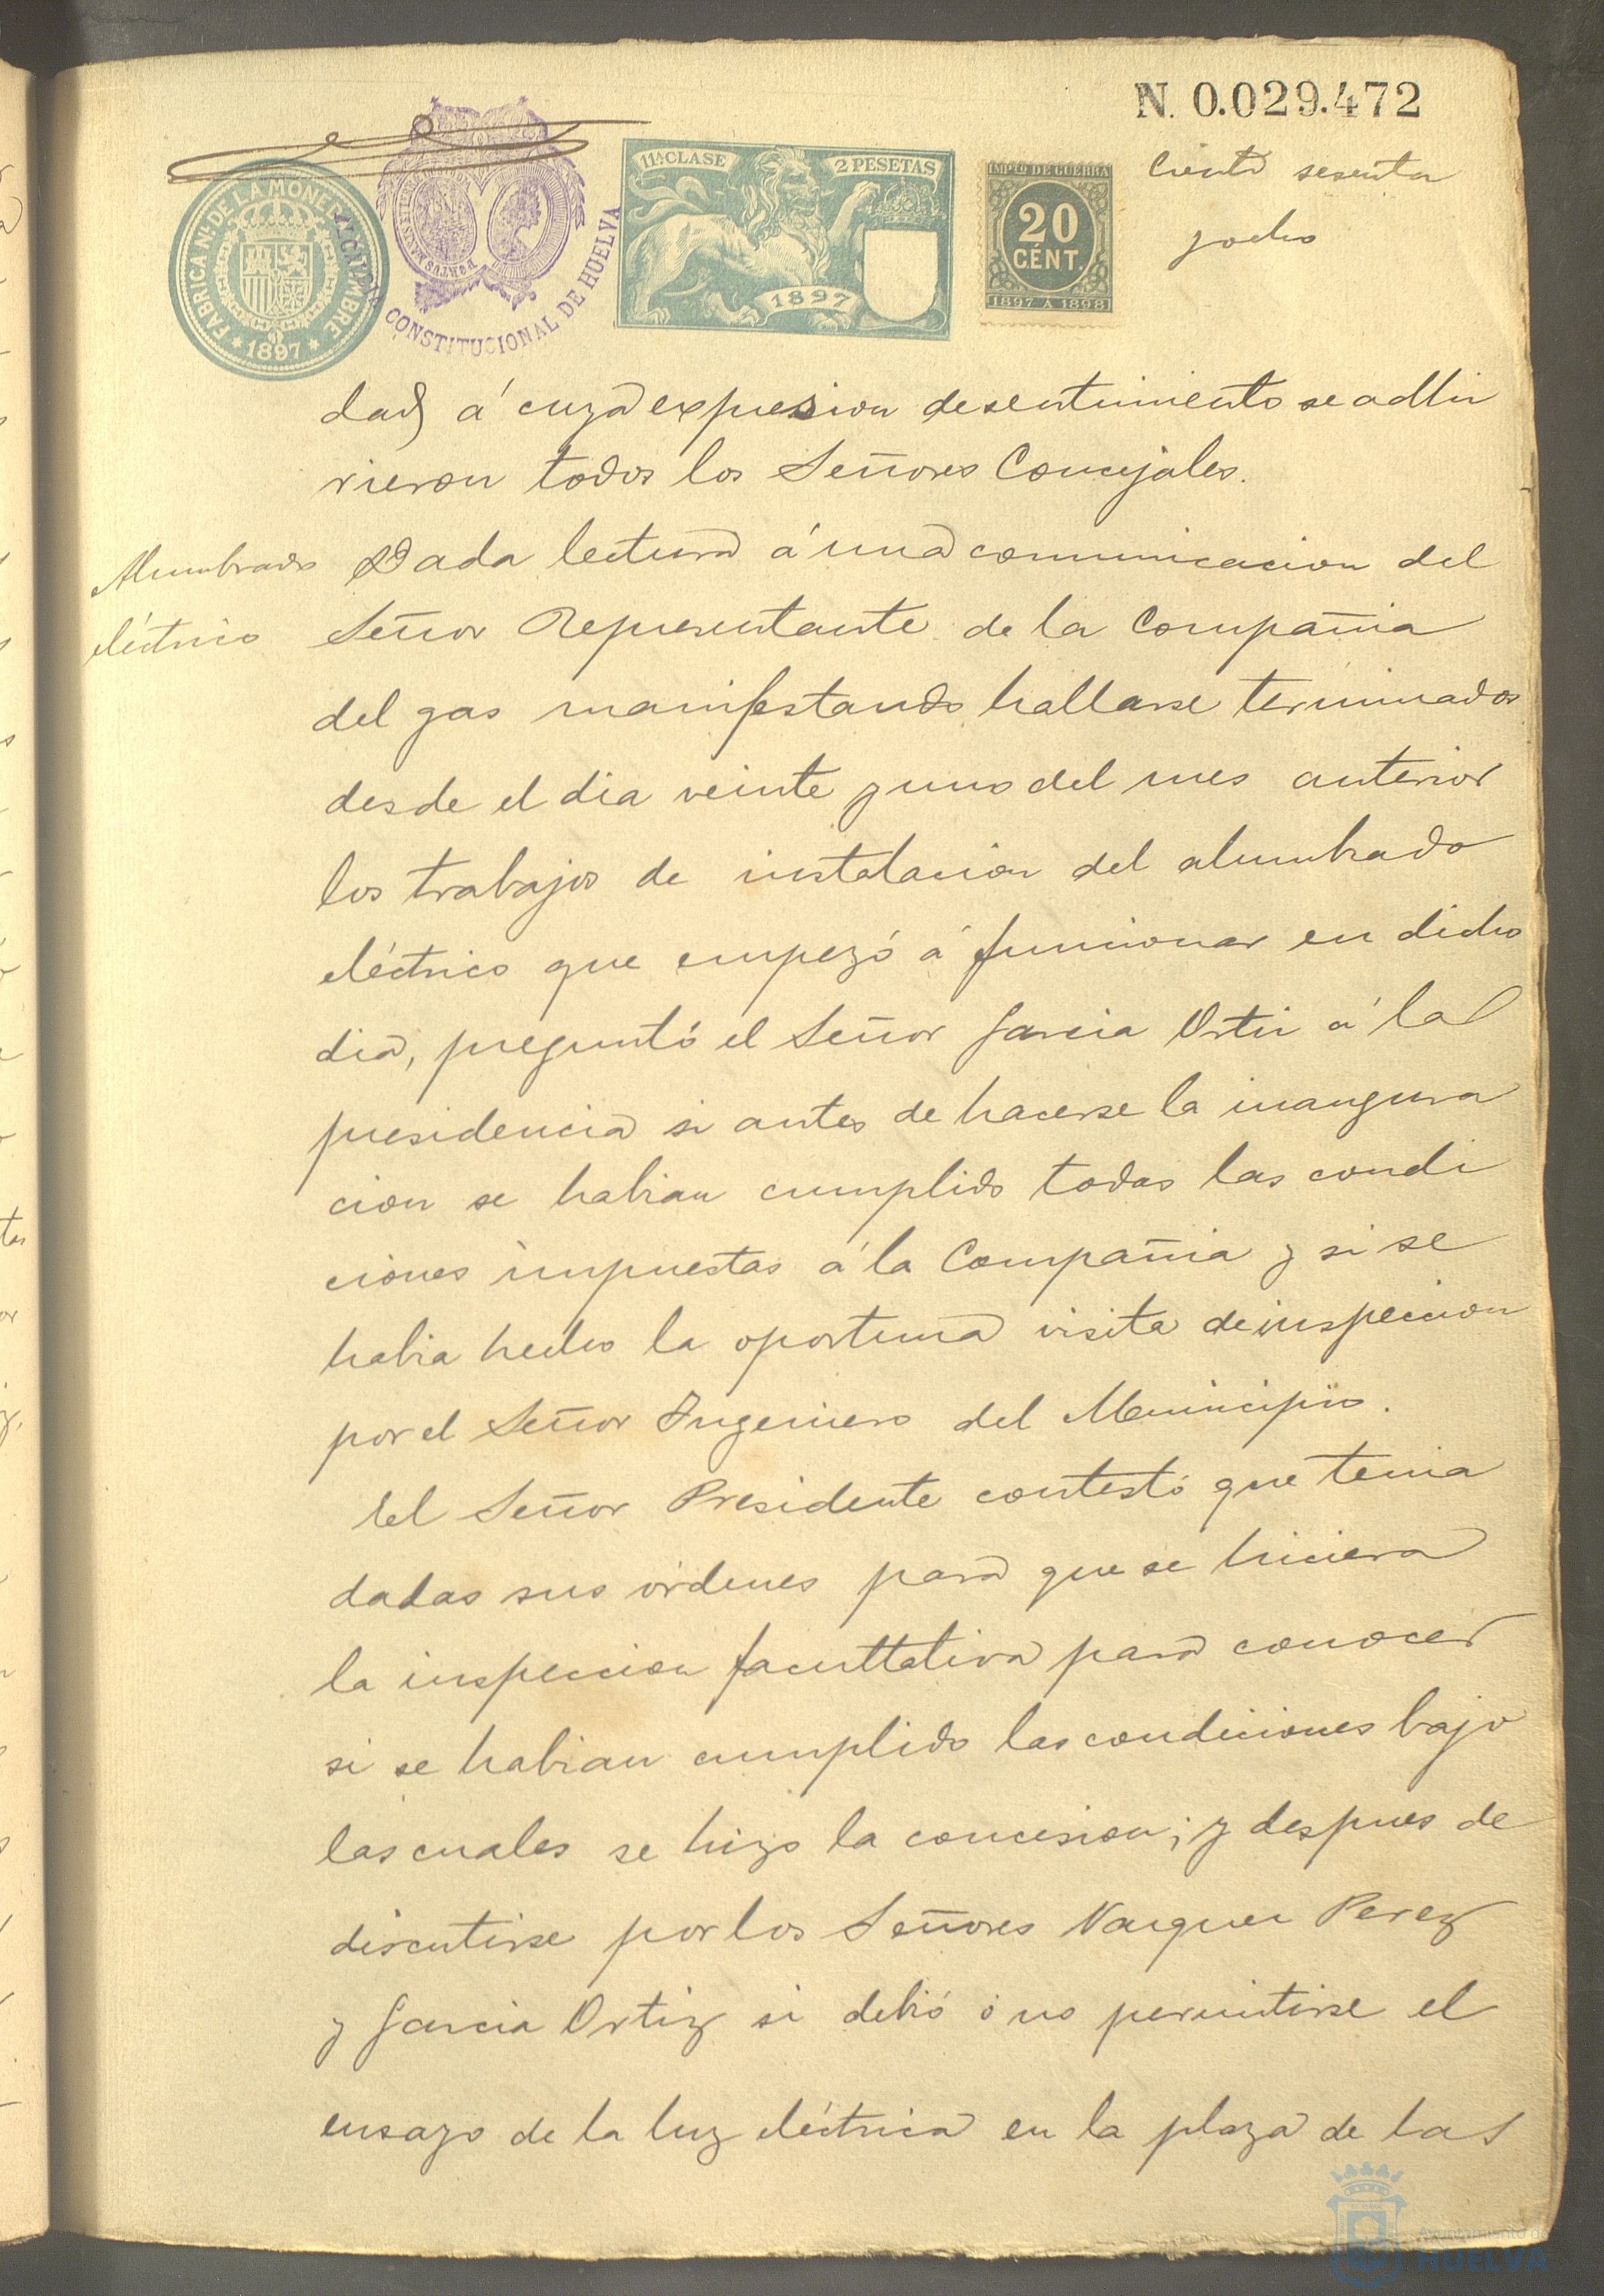 N. 0.029.472
Ciento sesenta
y ocho
FABRICA NL. DE LA MONEDA Y TIMBRE
* 1897 *
ALCALDIA CONSTITUCIONAL DE HUELVA
11ª CLASE
2 PESETAS
1897
IMPTO DE GUERRA
20
CÉNT.
1897 A 1898
dad á cuya expresion de sentimiento se adhi
rieron todos los Señores Concejales.
Alumbrado
eléctrico
Dada lectura á una comunicacion del
Señor Representante de la Compañia
del gas manifestando hallarse terminados
desde el dia veinte y uno del mes anterior
los trabajos de instalacion del alumbrado
eléctrico que empezó á funcionar en dicho
dia, preguntó el Señor Garcia Ortiz á la
presidencia si antes de hacerse la inaugura
cion se habian cumplido todas las condi
ciones impuestas á la Compañia y si se
habia hecho la oportuna visita de inspeccion
por el Señor Ingeniero del Municipio.
El Señor Presidente contestó que tenia
dadas sus órdenes para que se hiciera
la inspeccion facultativa para conocer
si se habian cumplido las condiciones bajo
las cuales se hizo la concesion; y despues de
discutirse por los Señores Vazquez Perez
y Garcia Ortiz si debió ó no permitirse el
ensayo de la luz eléctrica en la plaza de las
Ayuntamiento de
HUELVA